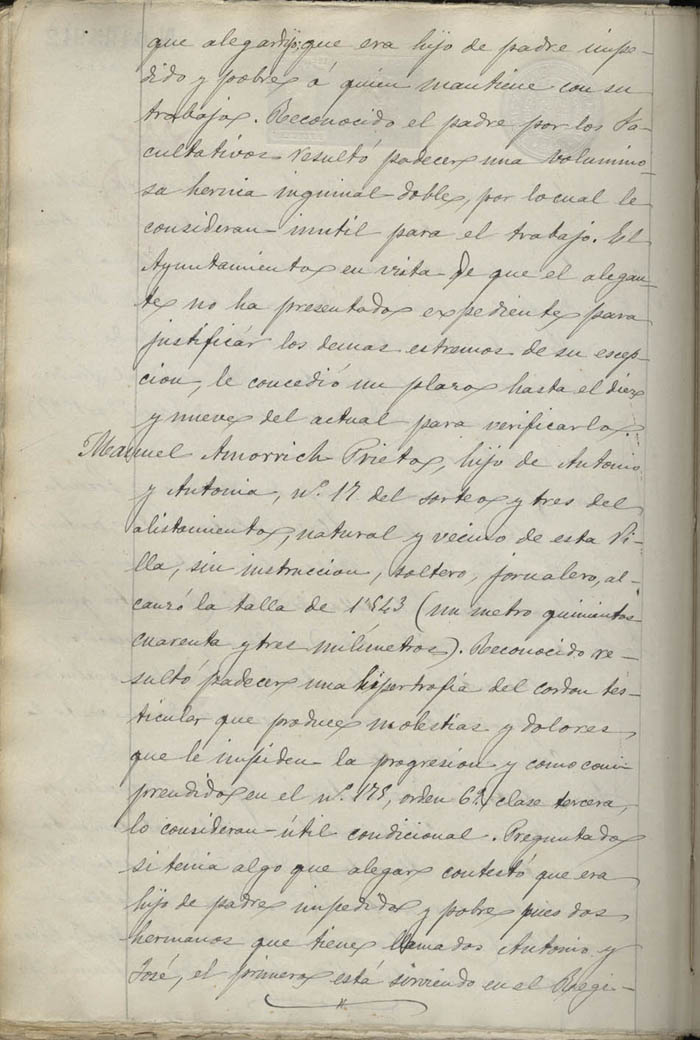 que alegar dijo; que era hijo de padre impe-
dido y pobre á quien mantiene con su
trabajo. Reconocido el padre por los Fa-
cultativos resultó padecer una volumino-
sa hernia inguinal doble, por lo cual le
consideran inutil para el trabajo. El
Ayuntamiento en vista de que el alegan-
te no ha presentado expediente para
justificár los demas estremos de su escep-
cion, le concedió un plazo hasta el diez
y nueve del actual para verificarlo.
Manuel Amorrich Prieto, hijo de Antonio
y Antonia, nº. 17 del sorteo y tres del
alistamiento, natural y vecino de esta Vi-
lla, sin instruccion, soltero, jornalero, al-
canzó la talla de 1'543 (un metro quinientos
cuarenta y tres milímetros). Reconocido re-
sultó padecer una hipertrofia del cordon tes-
ticular que produce molestias y dolores
que le impiden la progresion y como com-
prendido en el nº. 175, orden 6º. clase tercera,
lo consideran útil condicional. Preguntado
si tenia algo que alegar contestó que era
hijo de padre impedido y pobre pues dos
hermanos que tiene llamados Antonio y
José, el primero está sirviendo en el Regi-